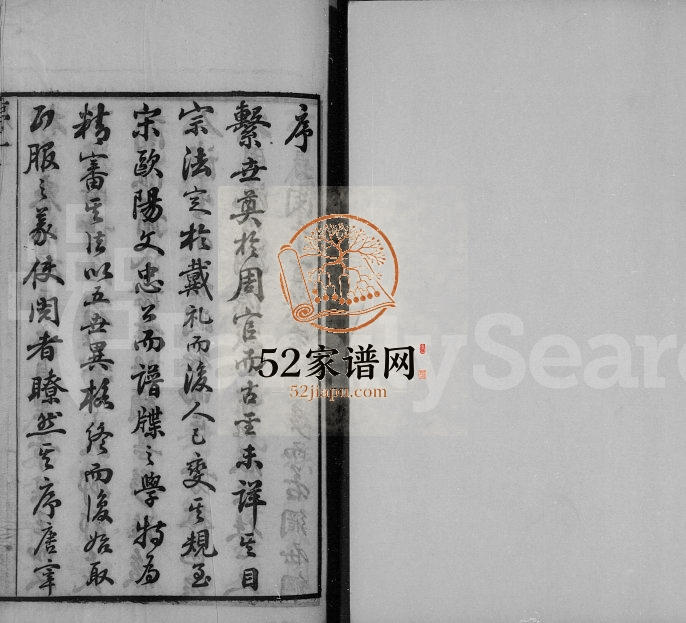 序
繫世奠於周官而古聖未詳其目
宗法定於戴礼而後人已變其規至
宋歐陽文忠公而譜牒之學特為
精審其法以五世異格終而復始取
五服之義使閱者瞭然其序唐宰
52家谱网
52jiapu.com
FamilySearch